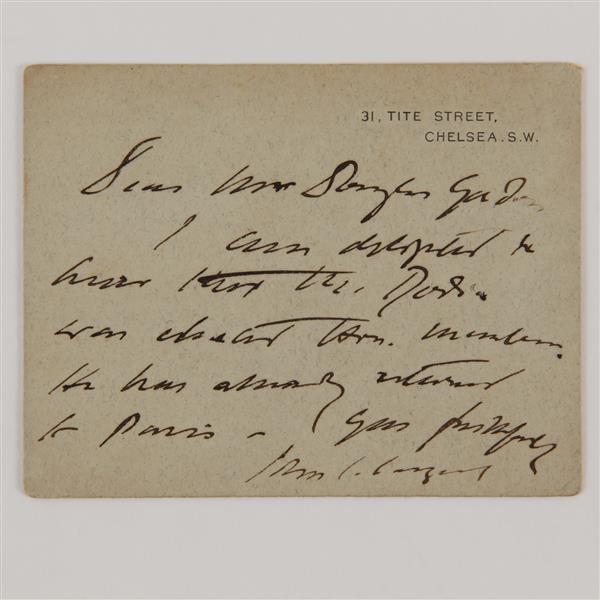 31, TITE STREET,
CHELSEA. S.W.
Dear Mrs Douglas Gordon
I am delighted to
hear that Mr. Rodin
was elected Hon. member.
He has already returned
to Paris –
Yours faithfully
John S. Sargent